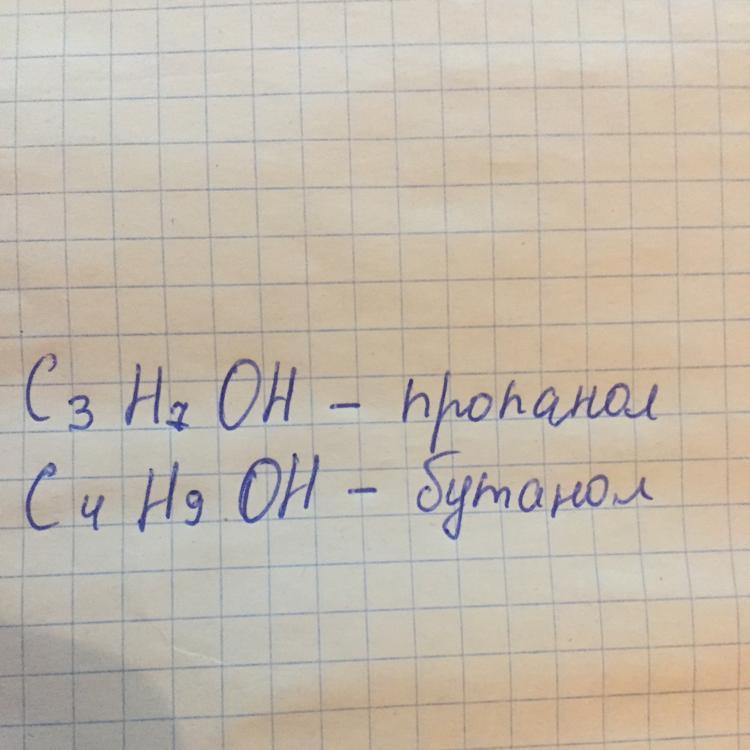 C₃H₇OH – пропанол
C₄H₉OH – бутанол